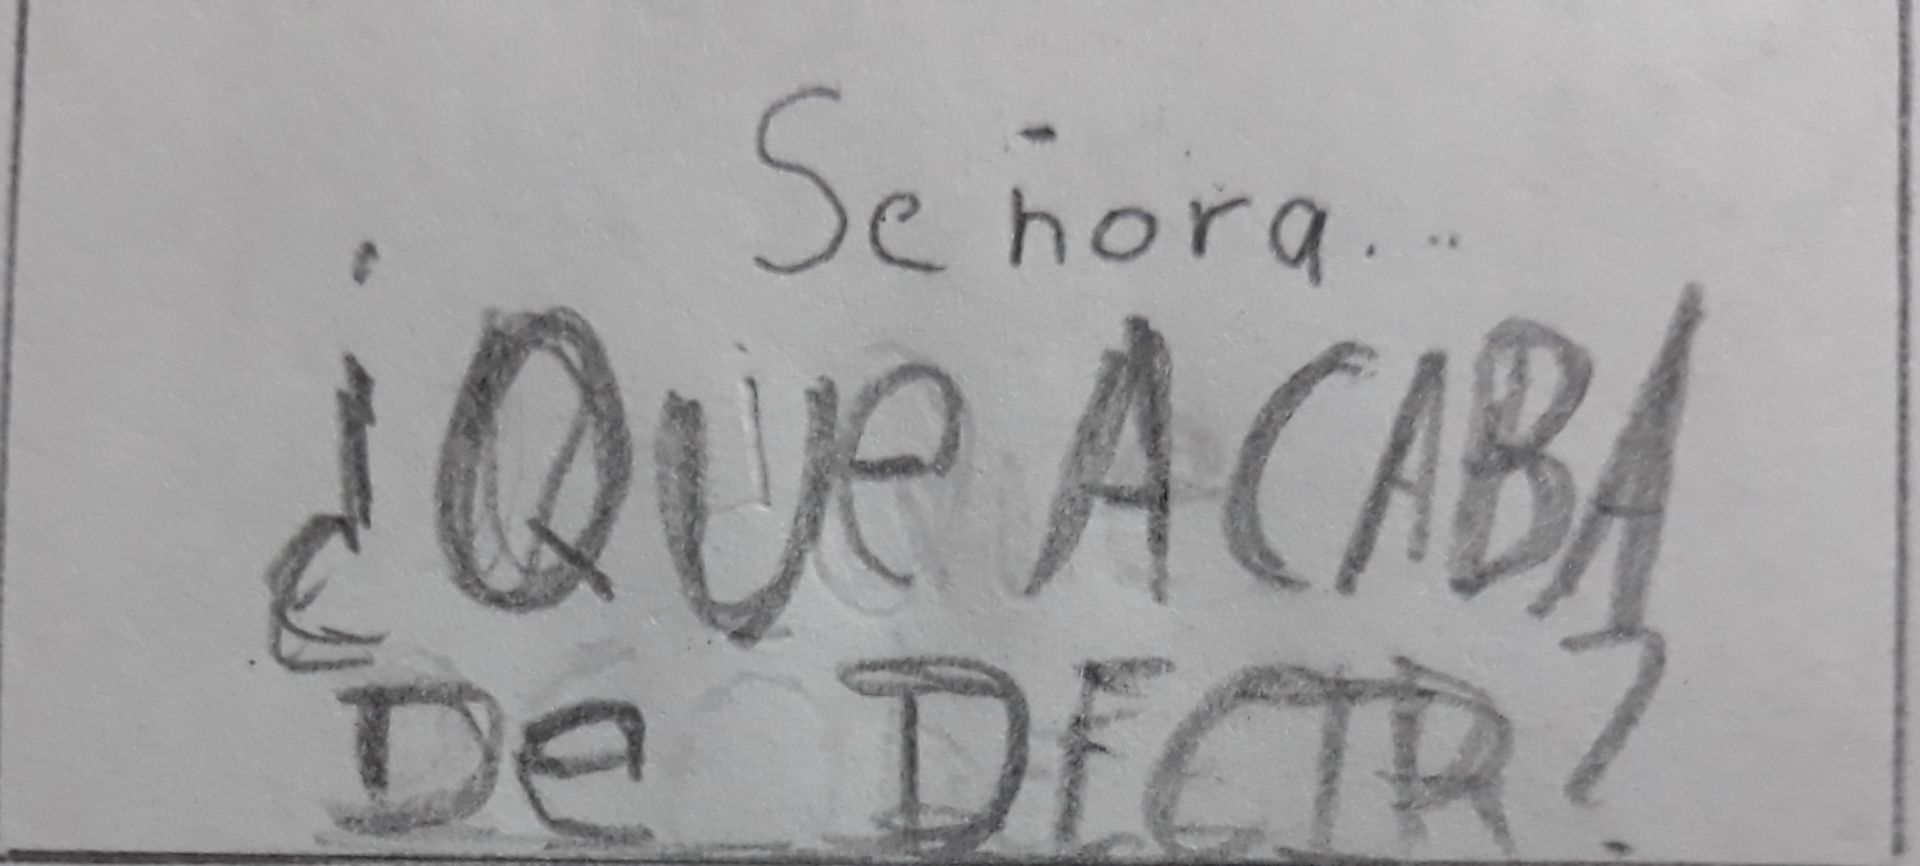 Señora...
¿QUe ACABA
De DECIR?